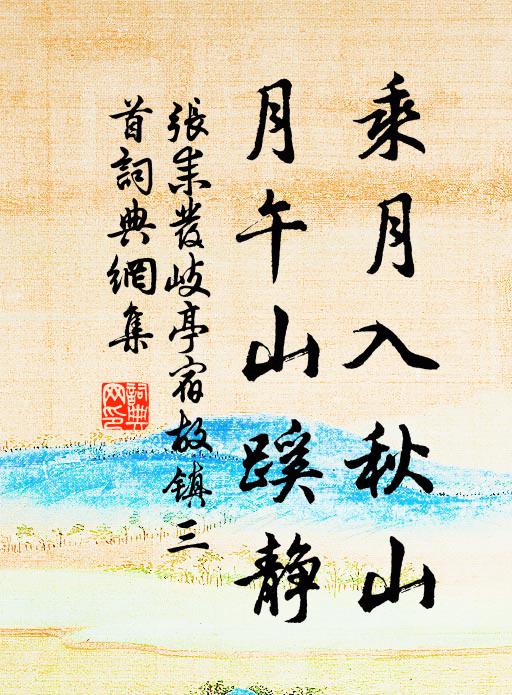 乘月入秋山
月午山蹊静
張耒發岐亭宿故鎮三
首詞典網集
詞典
网印